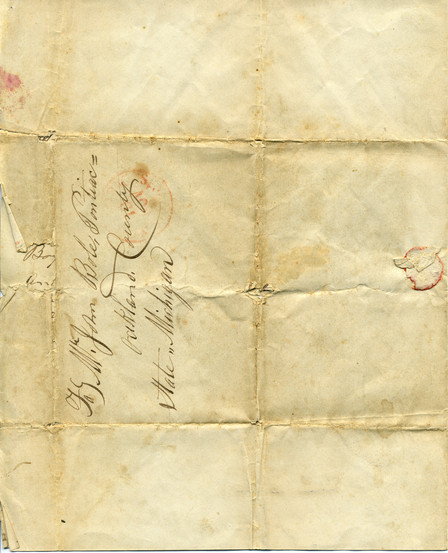 To Mr. John Bole, Pontiac=
Oakland County
State „ Michigan